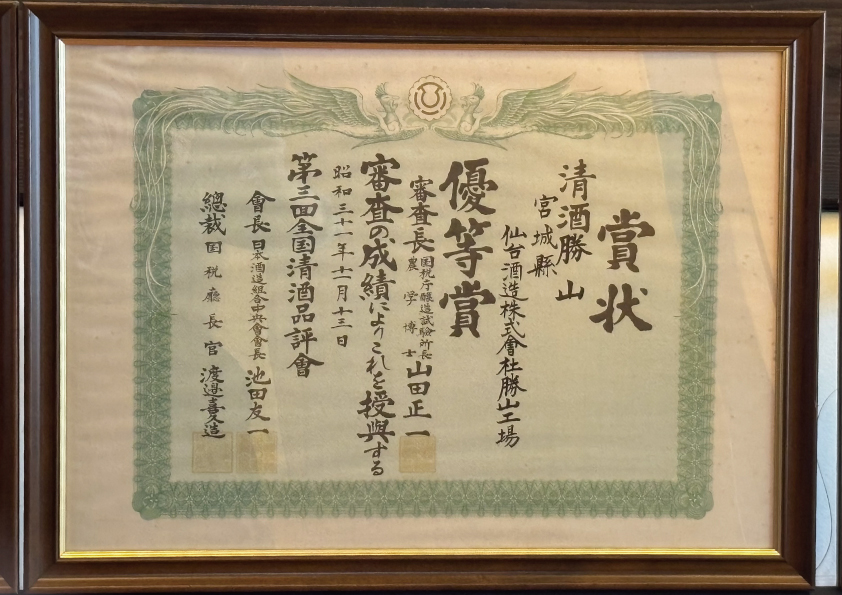 賞状
清酒勝山
宮城縣
仙台酒造株式會社勝山工場
優等賞
審査長
国税庁醸造試験所長
農学博士
山田正一
審査の成績によりこれを授與する
昭和三十一年十一月十三日
第三回全国清酒品評會
會長 日本酒造組合中央會會長 池田友一
總裁 国税廳長官 渡邉喜久造